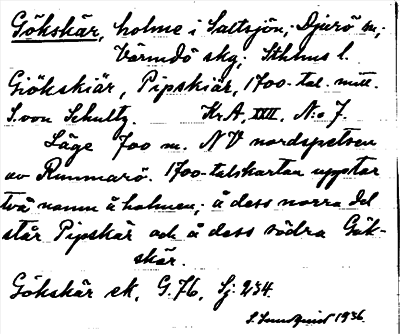 Gökskär, holme i Saltsjön, Djurö sn,
Värmdö skg, Sthlms l.
Giökskiär, Pipskiär, 1700-tal. mitt.
S. von Schultz. Kr A, XXII. N:o 7.
Läge 700 m. NV nordspetsen
av Runmarö. 1700-talskartan upptar
två namn å holmen; å dess norra del
står Pipskär och å dess södra Gök-
skär.
Gökskär ek. G. 76, Sj: 234.
S. Lundquist 1936.